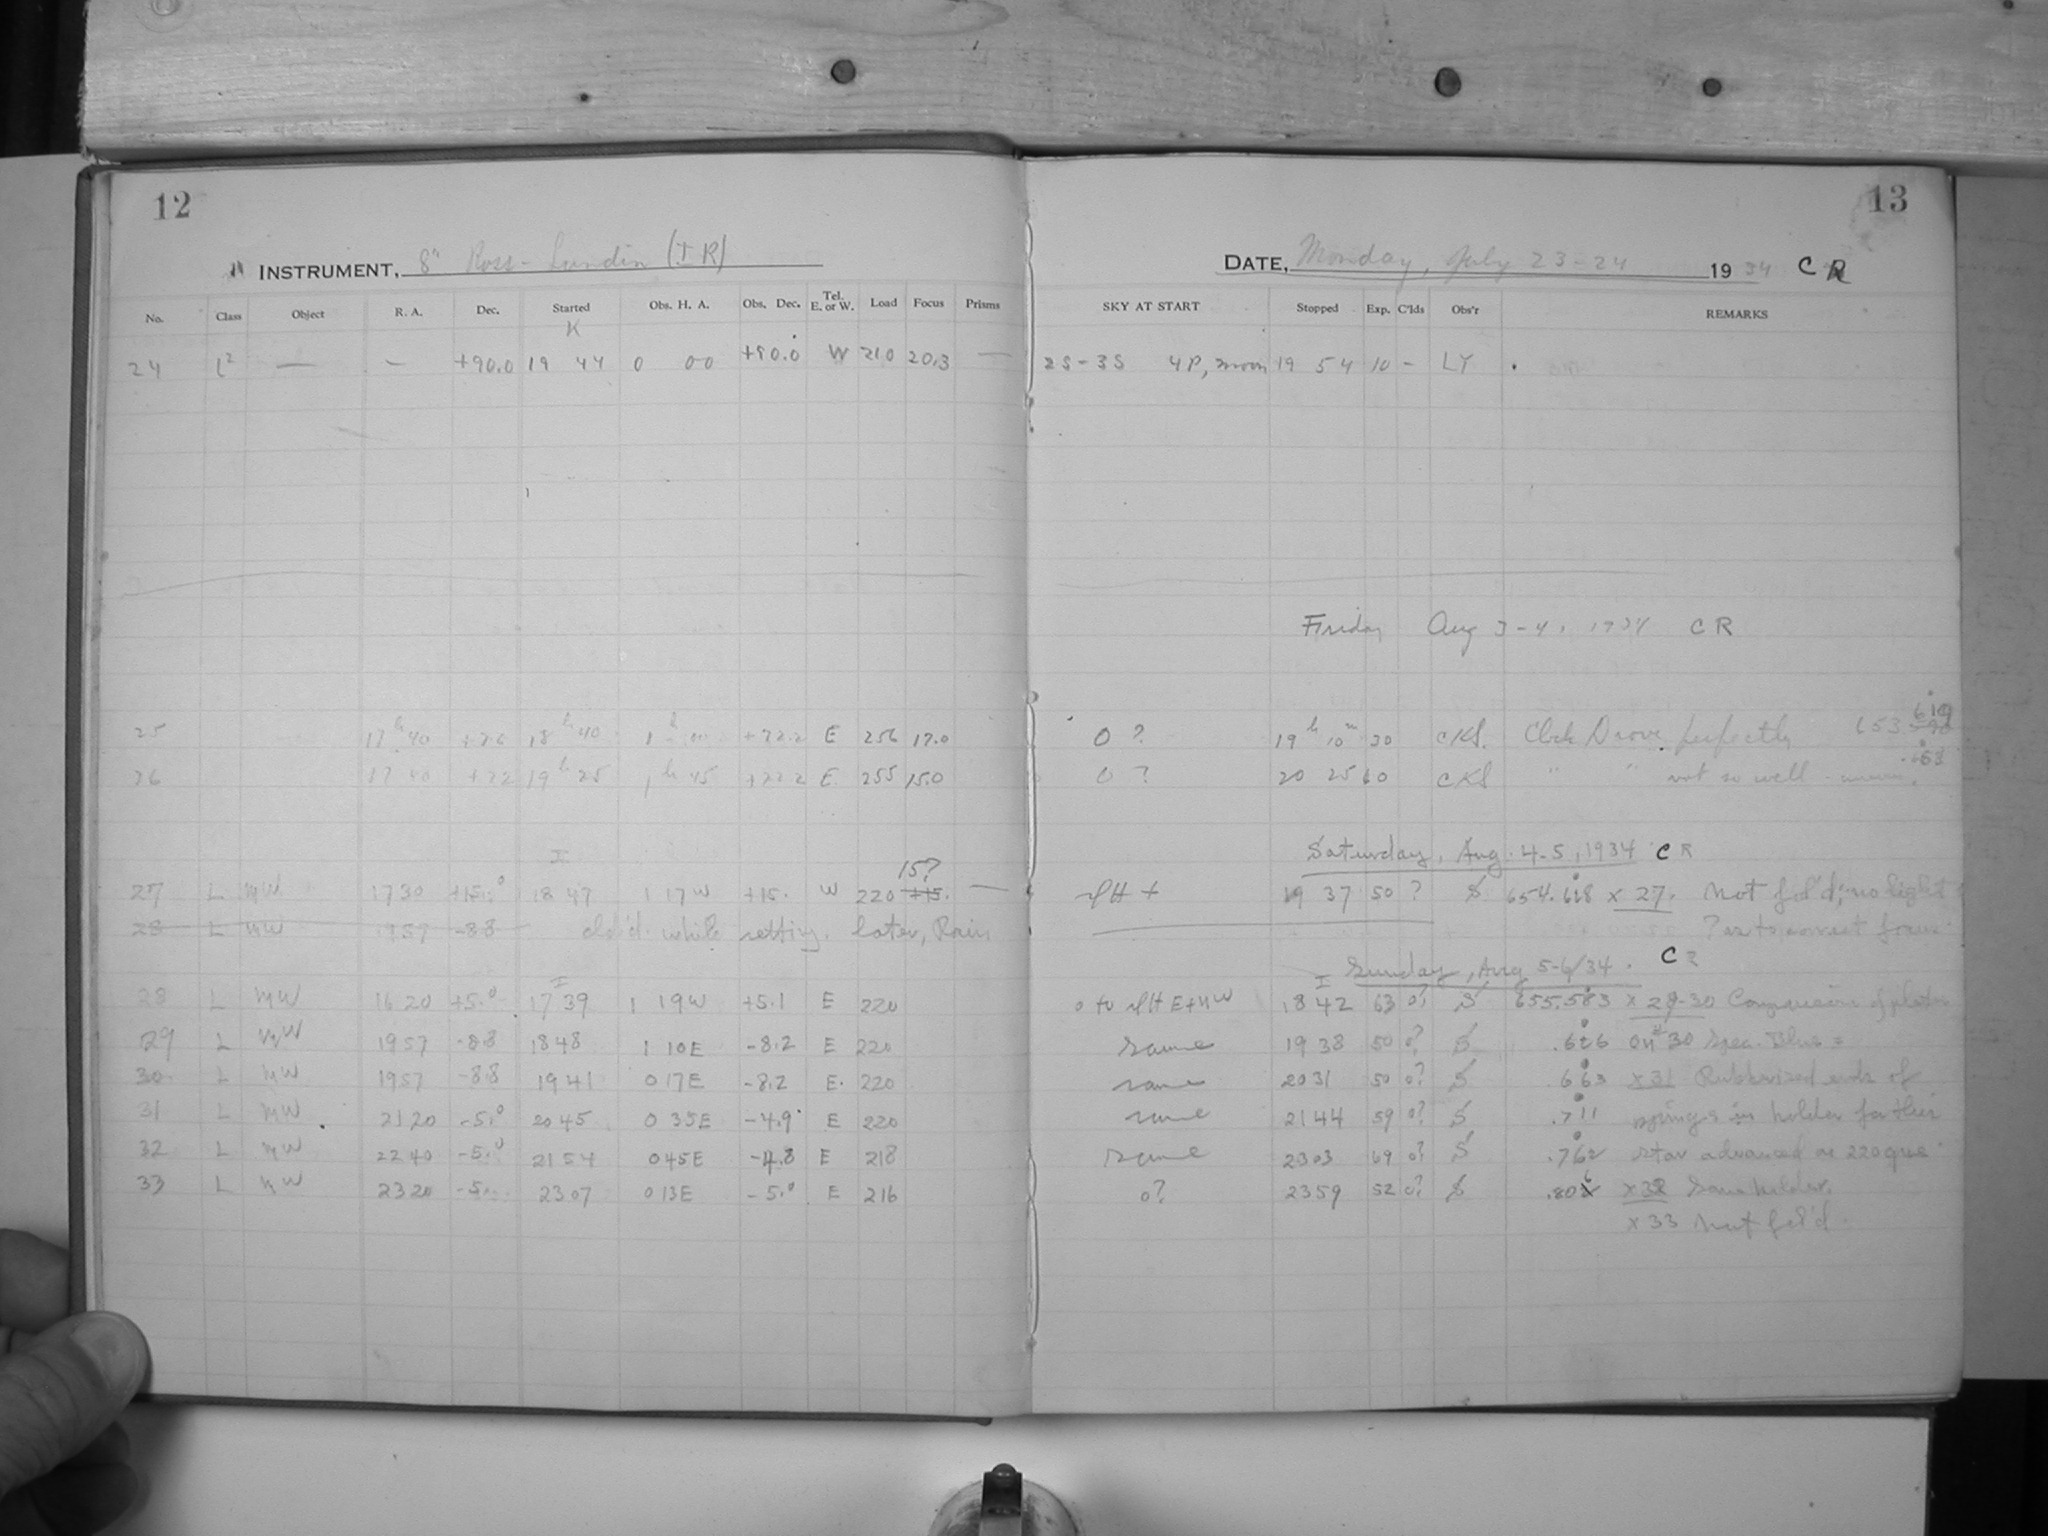 12
INSTRUMENT, 8" Ross-Lundin (IR)
No. Class Object R. A. Dec. Started Obs. H. A. Obs. Dec. Tel. E. or W. Load Focus Prisms
K
24 L² — — +90.0 19 44 0 00 +90.0 W 210 20.3 —
25 17ʰ 40 18ʰ 40 E 256 17.0
26 17 40 +22 19ʰ 25 1ʰ 45 +22.2 E 255 15.0
15?
27 L MW 1730 +15.0 18 47 1 17W +15. W 220 +15. —
28 L MW 1957 -8.8 cld'd while setting. later, Rain
I
28 L MW 16 20 +5.0 17 39 1 19W +5.1 E 220
29 L MW 1957 -8.8 1848 1 10E -8.2 E 220
30 L MW 1957 -8.8 1941 0 17E -8.2 E. 220
31 L MW 2120 -5.0 2045 0 35E -4.9 E 220
32 L MW 2240 -5.0 2154 045E -4.8 E 218
33 L MW 2320 -5. 2307 013E -5.0 E 216
13
DATE, Monday, July 23-24 1934 CR
SKY AT START Stopped Exp. C'lds Obs'r REMARKS
2S-3S 4P, moon 19 54 10 - LY
Friday Aug 3-4, 1934 CR
0 ? 19ʰ 10ᵐ 30 CKS. Clock Drove perfectly 653
0 ? 20 25 60 CKS " " not so well
Saturday, Aug. 4-5, 1934 CR
19 37 50 ? S 654.618 x 27. Not fol'd; no light
? as to correct focus
Sunday, Aug 5-6/34. CR
I
0 to E+NW 1842 63 0? S 655.583 x 29-30 Comparison of plates
same 1938 50 0? S .626 on #30
same 2031 50 0? S .663 x31 Rubberized ends of
same 2144 59 0? S .711 springs in holder for this
same 2303 69 0? S .762 star advanced
0? 2359 52 0? S .806 x32 Same holder.
x33 Not fol'd.